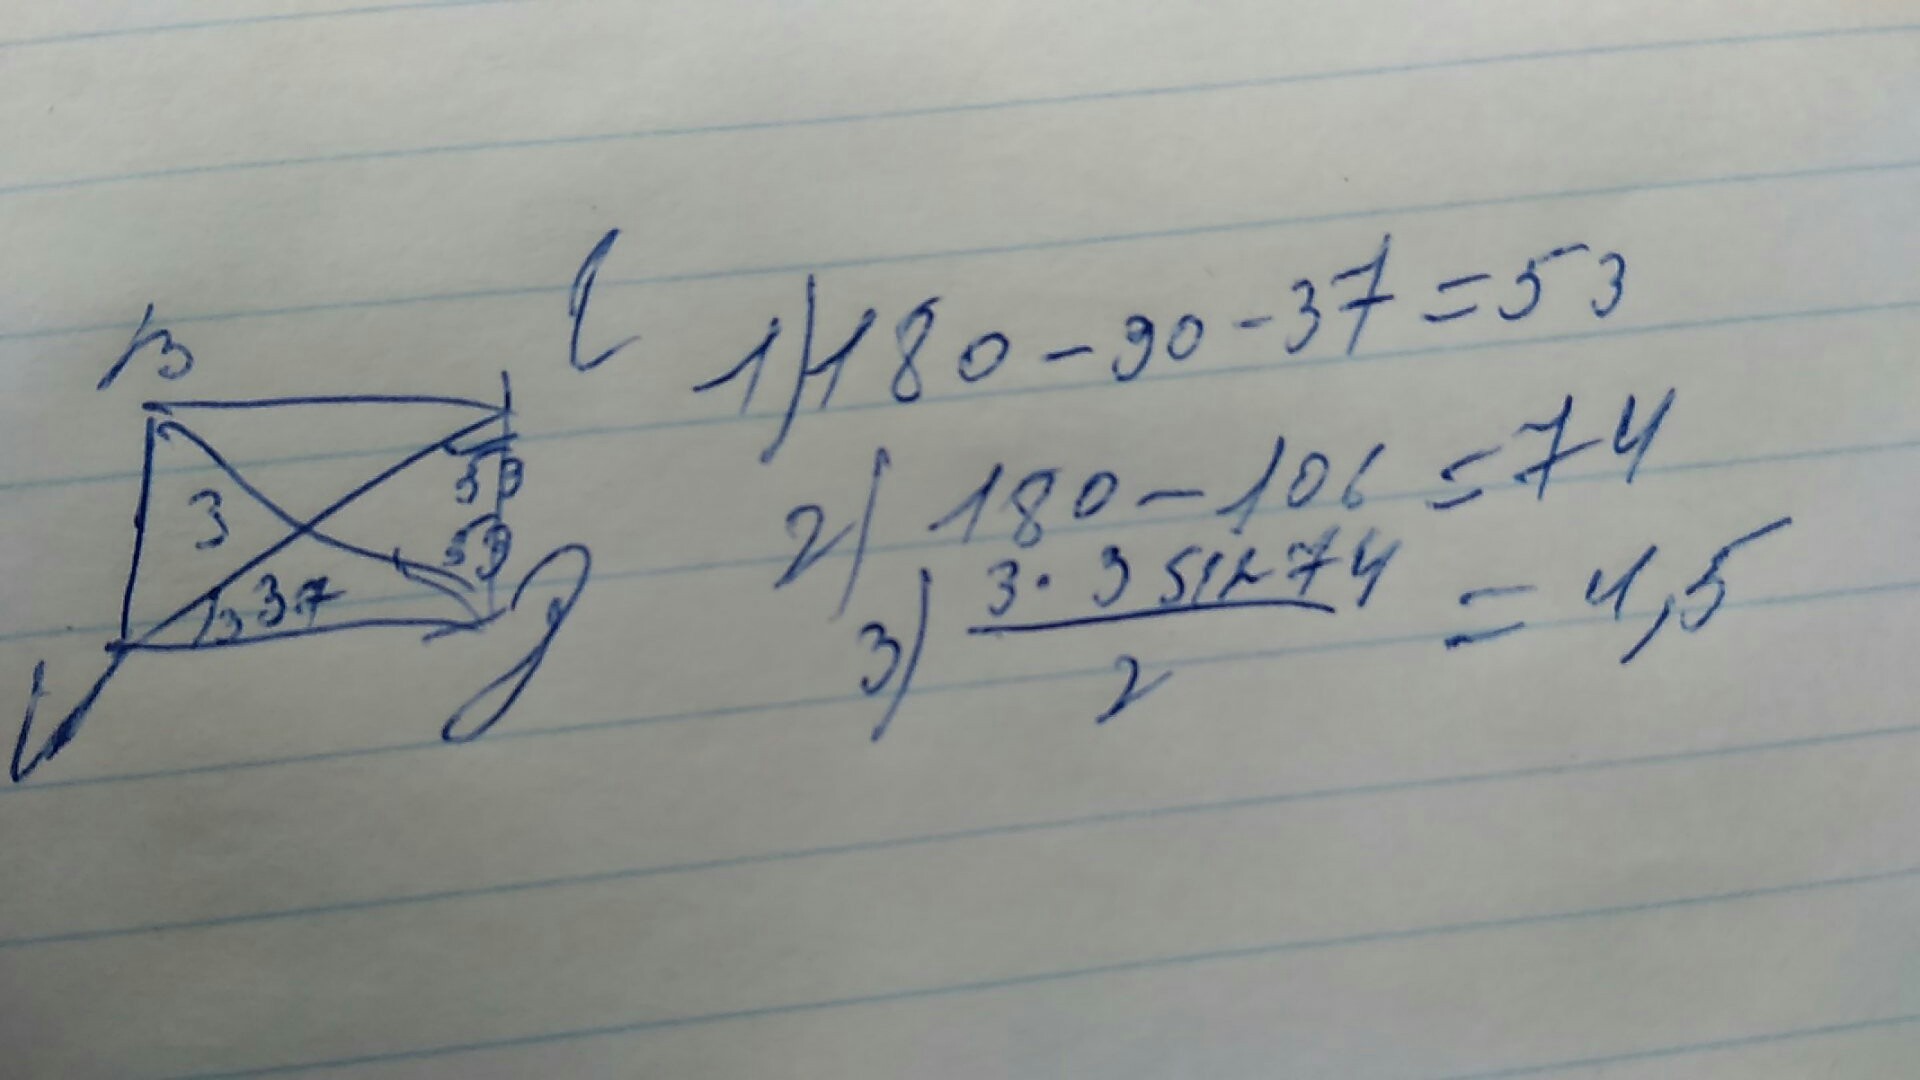 B
1) 180 - 90 - 37 = 53
2) 180 - 106 = 74
3) 3 · 3 sin 74 / 2 = 4,5
3
53
53
37